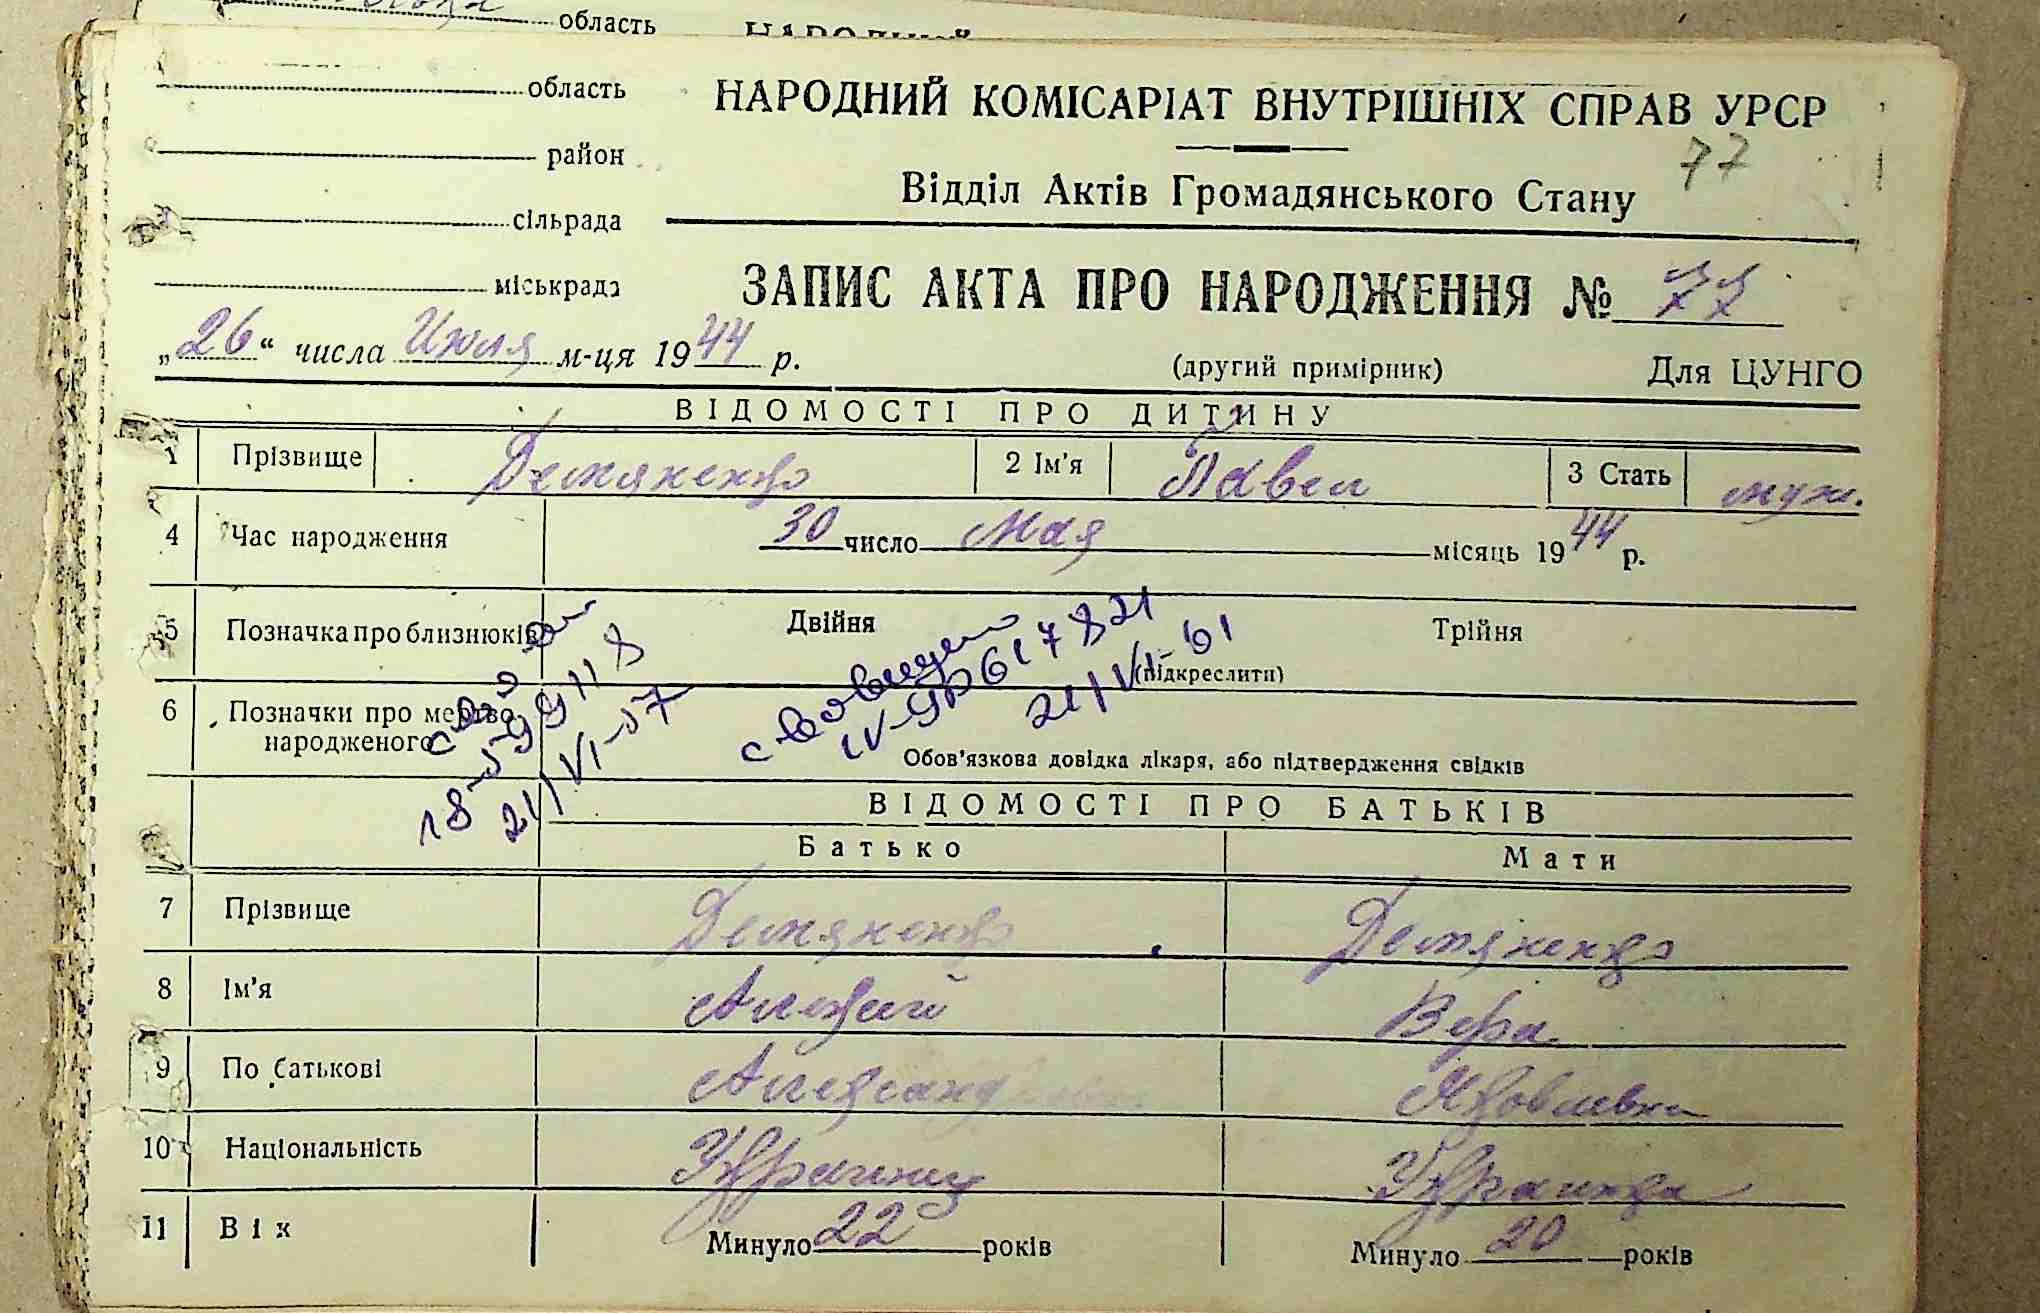 область
область
НАРОДНИЙ КОМІСАРІАТ ВНУТРІШНІХ СПРАВ УРСР
район
77
Відділ Актів Громадянського Стану
сільрада
міськрада
ЗАПИС АКТА ПРО НАРОДЖЕННЯ № 77
„26“ числа Июля м-ця 1944 р.
(другий примірник) Для ЦУНГО
ВІДОМОСТІ ПРО ДИТИНУ
1 Прізвище Демяненко 2 Ім'я Павел 3 Стать муж.
4 Час народження 30 число Мая місяць 1944 р.
5 Позначка про близнюків Двійня Трійня
(підкреслити)
6 Позначки про мертво-
народженого
Обов'язкова довідка лікаря, або підтвердження свідків
21/VI-57
IV-УР 617821
21/VI-61
ВІДОМОСТІ ПРО БАТЬКІВ
Батько Мати
7 Прізвище Демяненко Демяненко
8 Ім'я Алексей Вера
9 По батькові Александрович Яковлевна
10 Національність Украинец Украинка
11 Вік Минуло 22 років Минуло 20 років